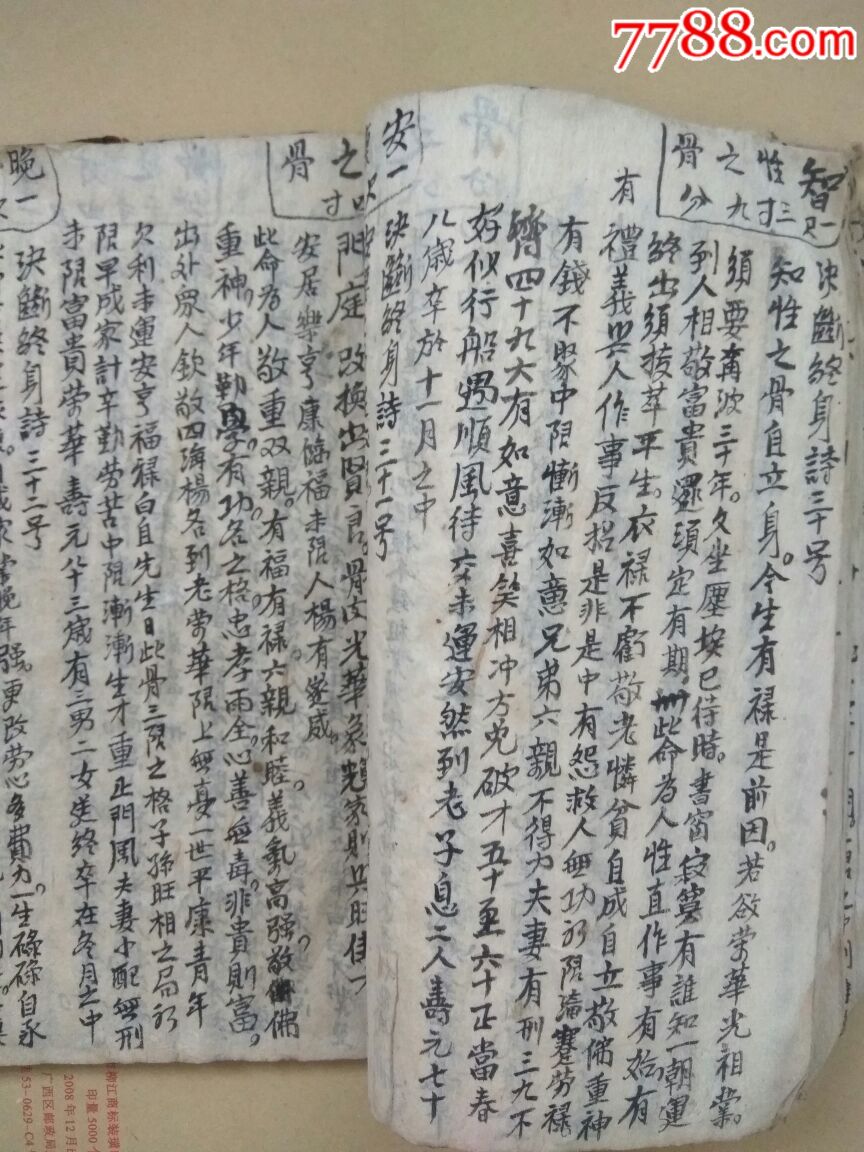 7788.com
智一
性三
之九寸
骨分
决斷終身詩三十号
知性之骨自立身。今生有禄是前因。若欲荣華光祖業。
須要奔波三十年。久坐塵埃已待時。書窗寂寞有誰知一朝運
到人相敬富貴還須定有期。此命為人性直作事有始有
終出須拔萃平生。衣禄不虧敬老憐貧自成自立敬佛重神
有禮義與人作事反招是非是中有怨救人無功初限蹇勞禄
有錢不聚中限慚漸如意兄弟六親不得力夫妻有刑三九不
四十九六有如意喜笑相冲方免破才五十至六十正當春
好似行船遇順風待交末運安然到老子息二人壽元七十
八歲卒於十一月之中
安一
决斷終身詩三十一号
之
寸
骨
門庭改換出賢良。骨皮光華象
安居樂亨康
福末限人楊有
此命為人敬重双親。有福有禄六親和睦。義氣高强敬佛
重神。少年勤學有功名之格忠孝兩全。心善無毒。非貴則富。
出外眾人欽敬四海楊名到老荣華限上無憂一世平康青年
欠利末運安亨福禄白自先生曰此骨三限之格子孫旺相之局初
限早成家計辛勤劳苦中限漸漸生才重正門風夫妻小配無刑
末限富貴荣華壽元八十三歲有三男二女送終卒在冬月之中
晚一
决斷終身詩三十二号
晚年强。更改劳心多費力。一生碌碌自承
柳江商标装璜
印量5000个
2008年12月
广西区邮政局
53-0629-C4